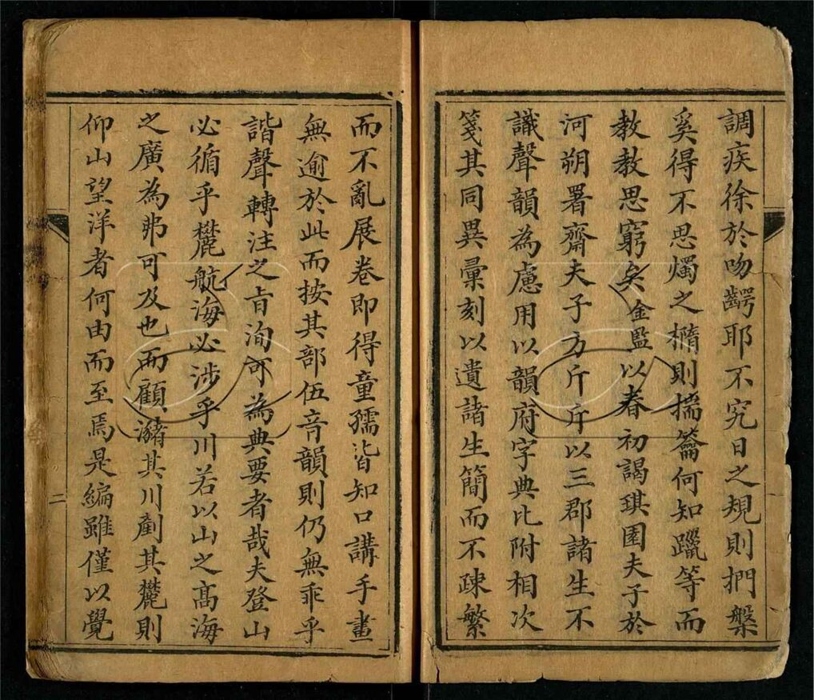 調疾徐於吻齶耶不究日之規則捫槃
奚得不思燭之橢則揣籥何知躐等而
教教思窮矣金監以春初謁琪園夫子於
河朔署齋夫子方斤斤以三郡諸生不
識聲韻為慮用以韻府字典比附相次
箋其同異彙刻以遺諸生簡而不疎繁
而不亂展卷即得童孺皆知口講手畫
無逾於此而按其部伍音韻則仍無乖乎
諧聲轉注之旨洵可為典要者哉夫登山
必循乎麓航海必涉乎川若以山之高海
之廣為弗可及也而顧瀦其川剷其麓則
仰山望洋者何由而至焉是編雖僅以覺
二